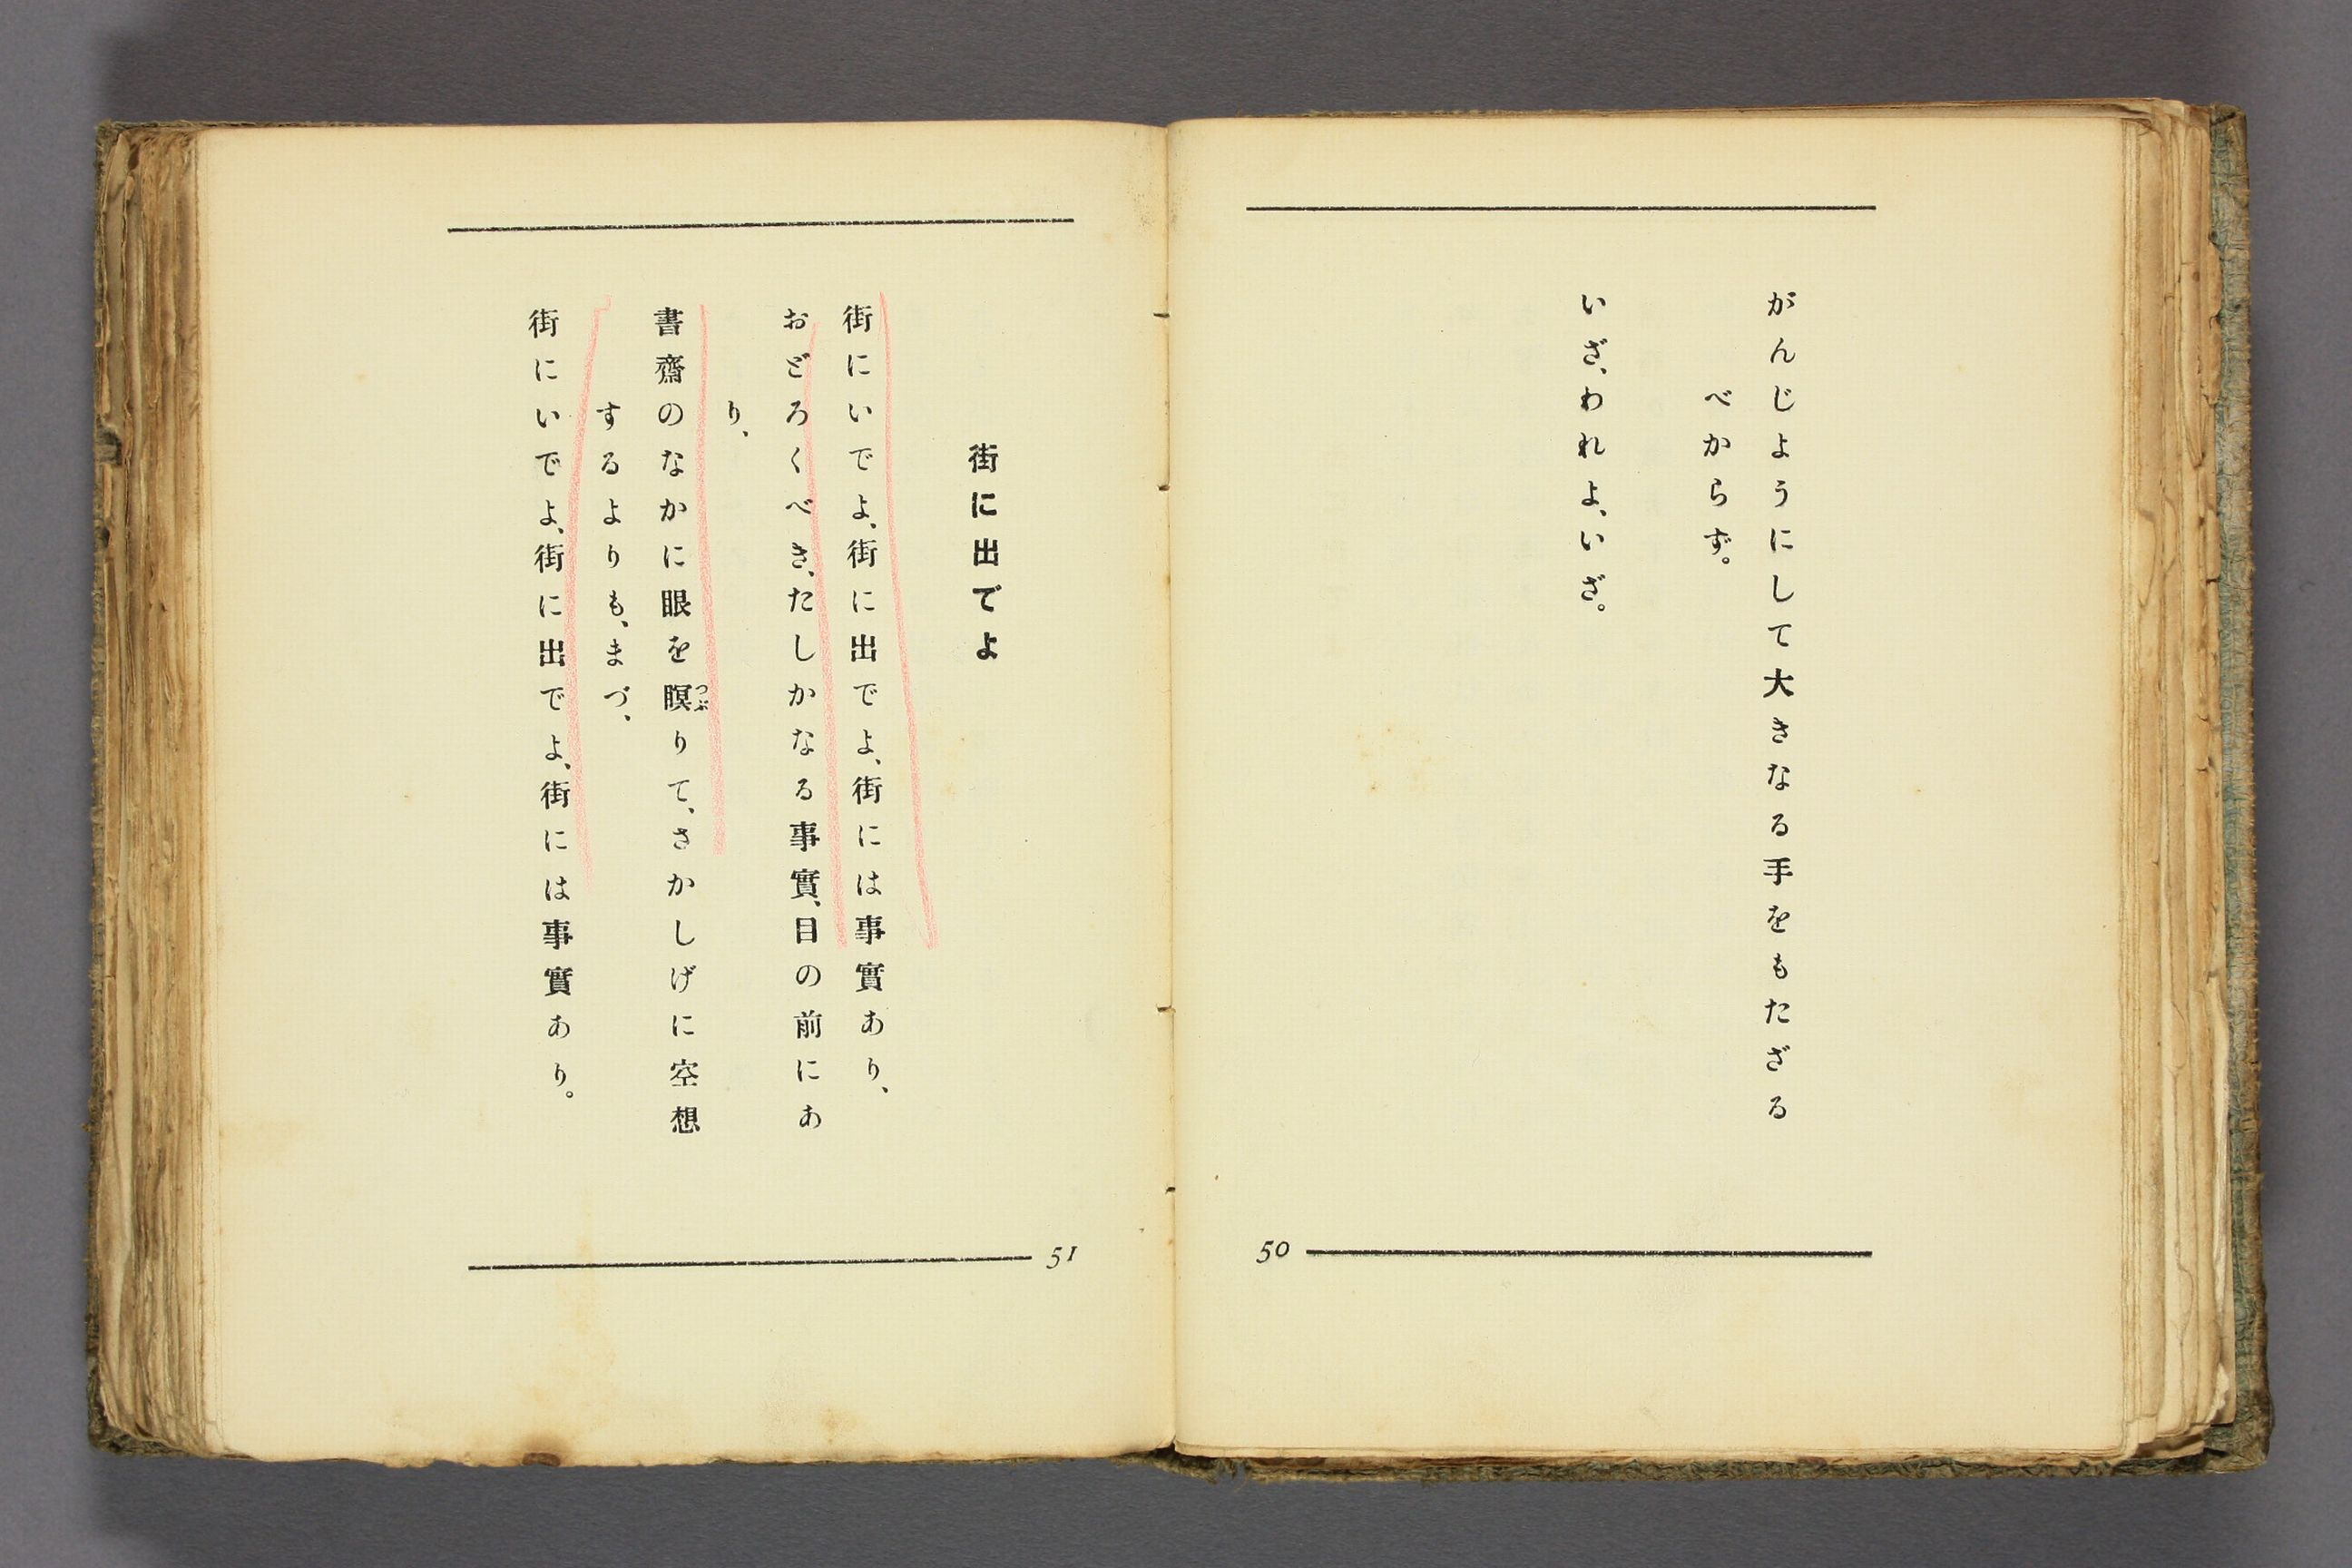 がんじようにして大きなる手をもたざる
べからず。
いざ、われよ、いざ。
50
街に出でよ
街にいでよ、街に出でよ、街には事實あり、
おどろくべき、たしかなる事實、目の前にあ
り、
書齋のなかに眼を瞑りて、さかしげに空想
つぶ
するよりも、まづ、
街にいでよ、街に出でよ、街には事實あり。
51